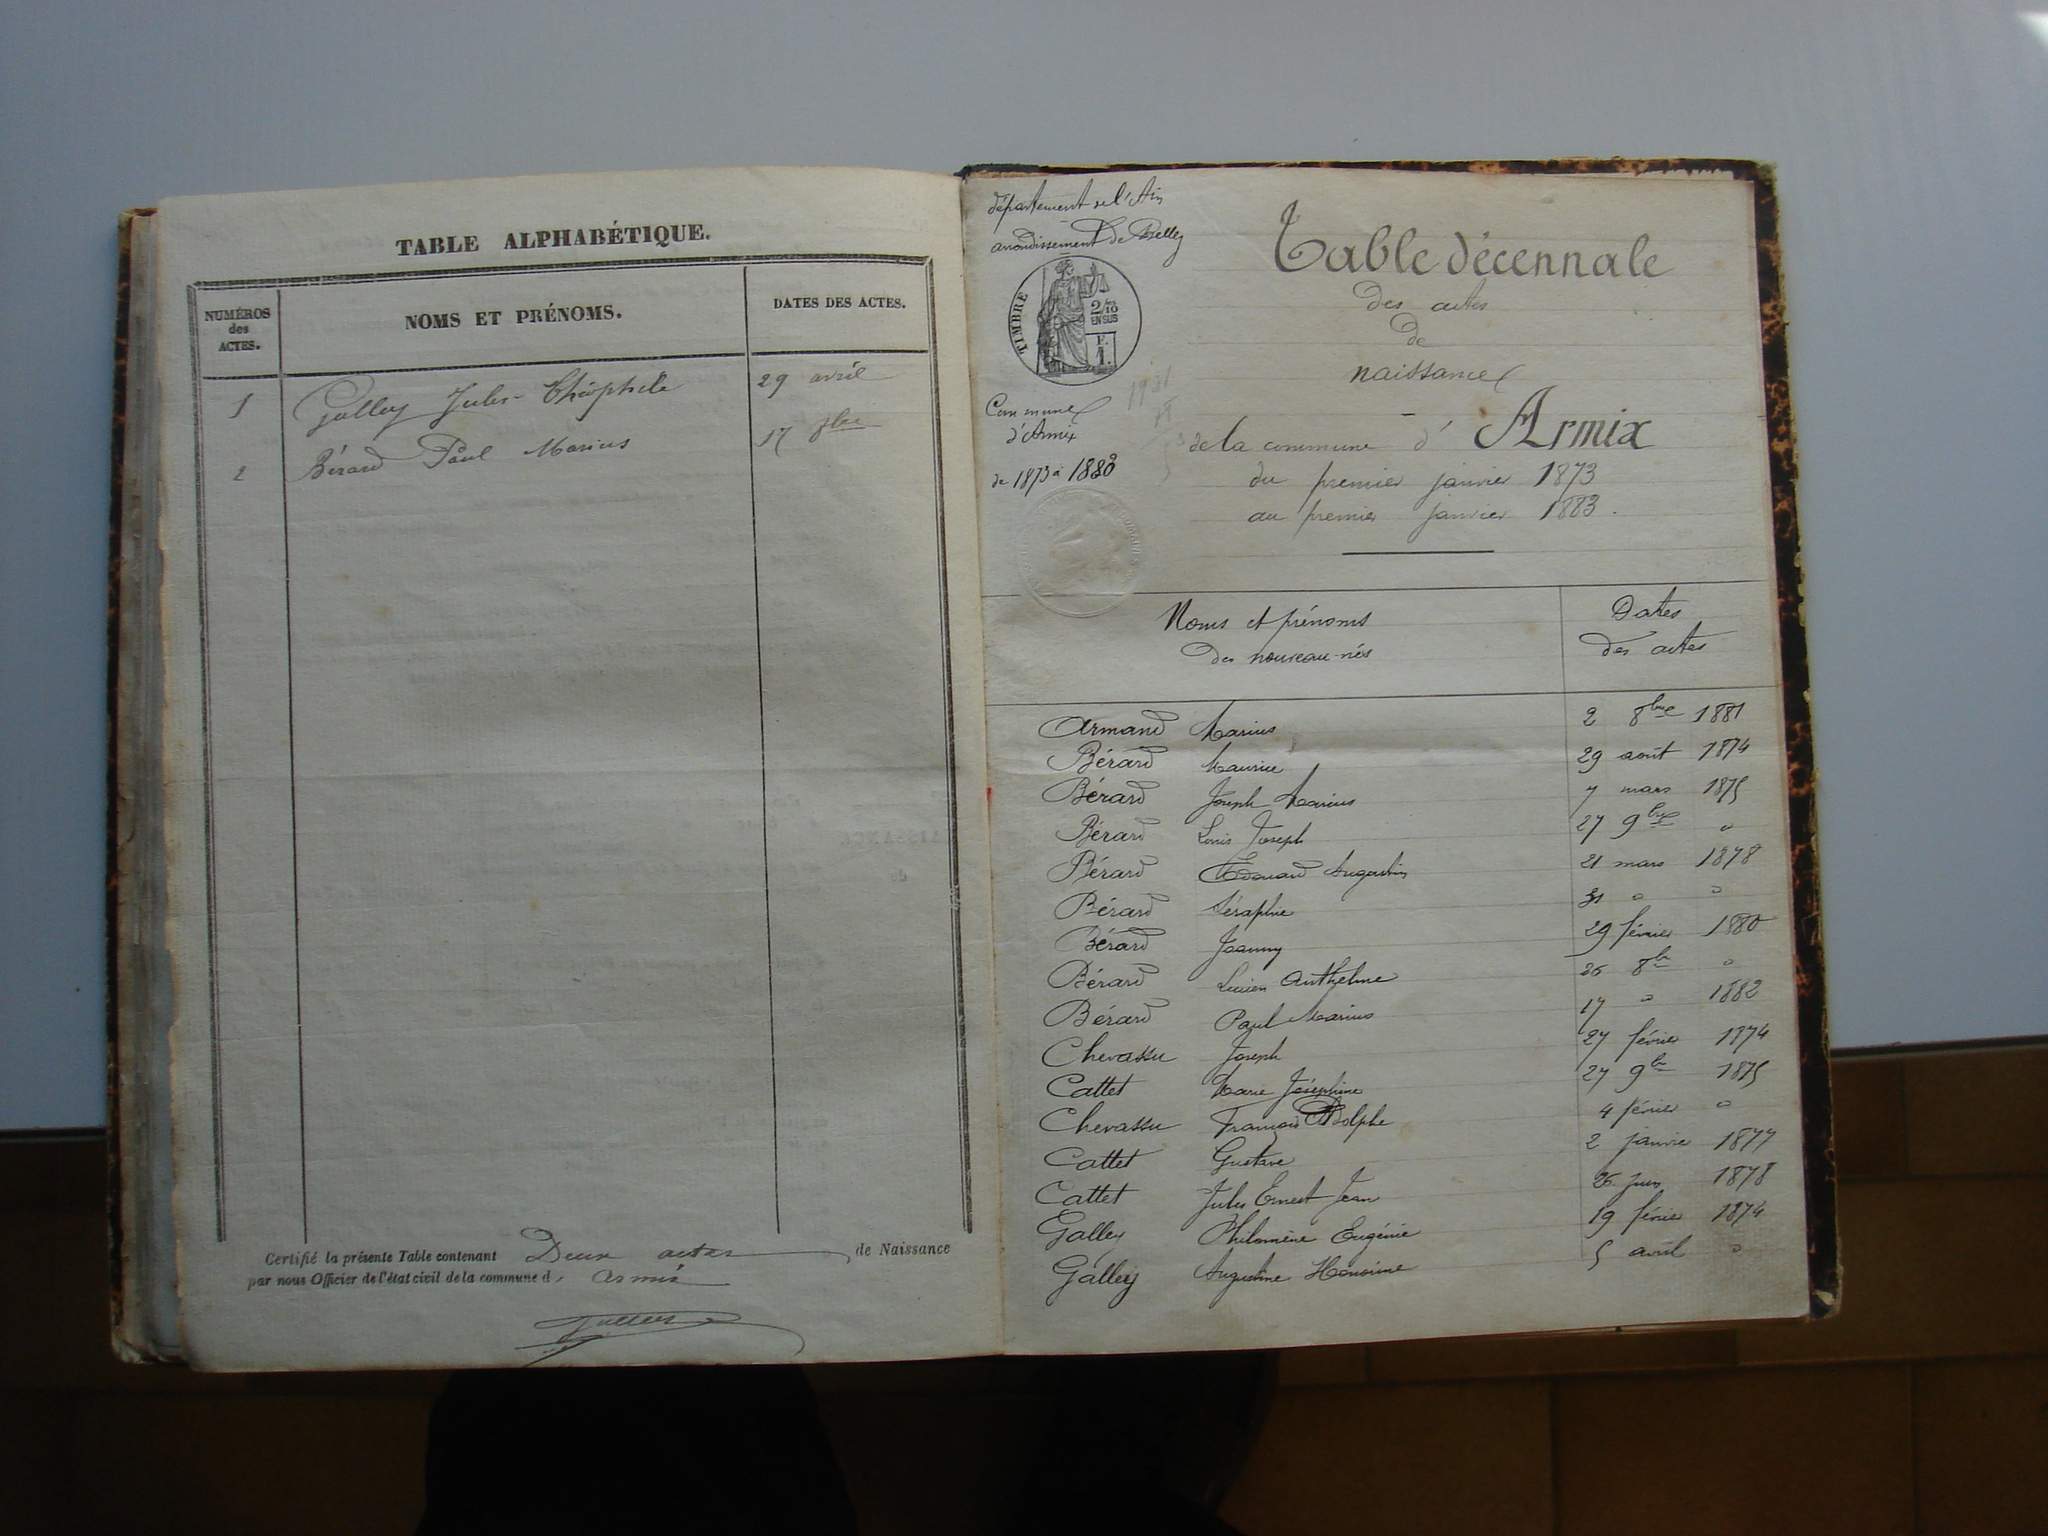 TABLE ALPHABÉTIQUE.
NUMÉROS des ACTES.
NOMS ET PRÉNOMS.
DATES DES ACTES.
1 Galley Jules-Théophile 29 avril
2 Bérard Paul Marius 17 8bre
Certifié la présente Table contenant Deux actes de Naissance
par nous Officier de l'état civil de la commune d' Armix
département de l'Ain
arrondissement de Belley
TIMBRE
2/10
EN SUS
F.
1.
Commune
d'Armix
de 1873 à 1883
Table décennale
des actes
de
naissance
de la commune d' Armix
du premier janvier 1873
au premier janvier 1883.
Noms et prénoms
des nouveau-nés
Dates
des actes
Armand Marius 2 8bre 1881
Bérard Maurice 29 août 1874
Bérard Joseph Marius 7 mars 1875
Bérard Louis Joseph 27 9bre "
Bérard Edouard Augustin 21 mars 1878
Bérard Séraphie 31 " "
Bérard Joanny 29 février 1880
Bérard Lucien Anthelme 26 8bre "
Bérard Paul Marius 17 " 1882
Chevassu Joseph 27 février 1874
Cattet Marie Joséphine 27 9bre 1875
Chevassu François Adolphe 4 février "
Cattet Gustave 2 janvier 1877
Cattet Jules Ernest Jean 26 juin 1878
Galley Philomène Eugénie 19 février 1874
Galley Augustine Honorine 5 avril "